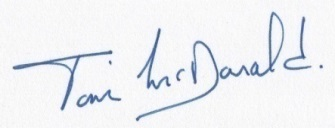 Toni McDonald.